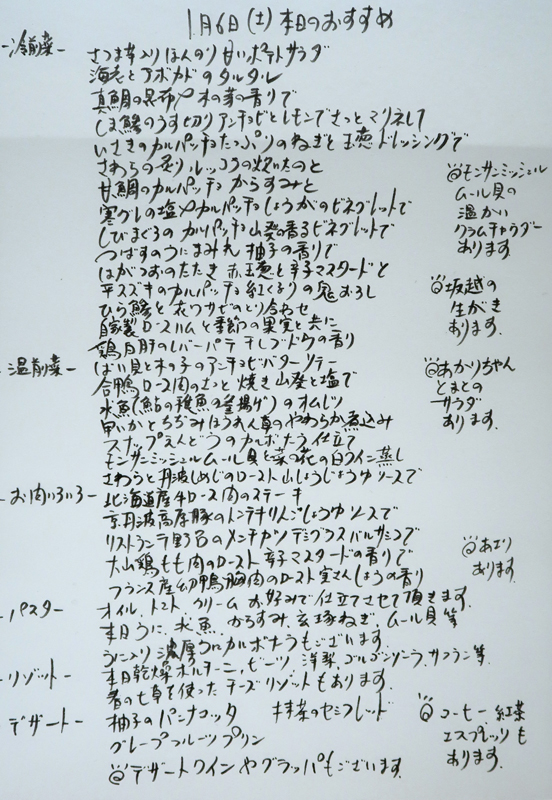 1月6日(土)本日のおすすめ
-冷前菜-
さつま芋入りほんのり甘いポテトサラダ
海老とアボカドのタルタル
真鯛の昆布〆木の芽の香りで
しま鯵のうす切りアンチョビとレモンでさっとマリネして
いさきのカルパッチョたっぷりのねぎと玉葱ドレッシングで
さわらの炙りルッコラの
甘鯛のカルパッチョからすみと
寒グレの塩〆カルパッチョしょうがのビネグレットで
しびまぐろのカルパッチョ山葵香るビネグレットで
つばすのうにまみれ 柚子の香りで
はがつおのたたき 赤玉葱と辛子マスタードと
平スズキのカルパッチョ紅くるりの鬼おろし
ひら鯵と衣つサゼのとり合わせ
自家製ロースハムと季節の果実と共に
鶏白肝のレバーパテ干しブドウの香り
-温前菜-
ばい貝と木の子のアンチョビバターソテー
合鴨ロース肉のさっと焼き山葵と塩で
氷魚(鮎の稚魚の釜揚げ)のオムレツ
甲いかとちぢみほうれん草のやわらか煮込み
スナップえんどうのカルボナーラ仕立て
モンサンミッシェルムール貝と菜の花の白ワイン蒸し
さわらと丹波しめじのロースト山しょうじょうゆソースで
-お肉いろいろ-
北海道産牛ロース肉のステーキ
京丹波高原豚のトンテキりんごしょうゆソースで
リストランテ野呂のメンチカツデミグラスバルサミコで
大山鶏もも肉のロースト辛子マスタードの香りで
フランス産幼鴨胸肉のロースト実さんしょうの香り
-パスタ-
オイル、トマト クリーム お好みで仕立てさせて頂きます。
本日うに、氷魚、からすみ、玄琢ねぎ、ムール貝等
うに入り濃厚うにカルボナーラもございます。
-リゾット-
本日乾燥ポルチーニ、ビーツ、洋梨、ゴルゴンゾーラ、サフラン等
春の七草を使ったチーズリゾットもあります。
-デザート-
柚子のパンナコッタ 抹茶のセミフレッド
グレープフルーツプリン
◎デザートワインやグラッパもございます。
◎モンサンミッシェル
ムール貝の
温かい
クラムチャウダー
あります。
◎坂越の
生がき
あります。
◎あかりちゃん
とまとの
サラダ
あります。
◎あエリ
あります。
◎コーヒー、紅茶
エスプレッソも
あります。